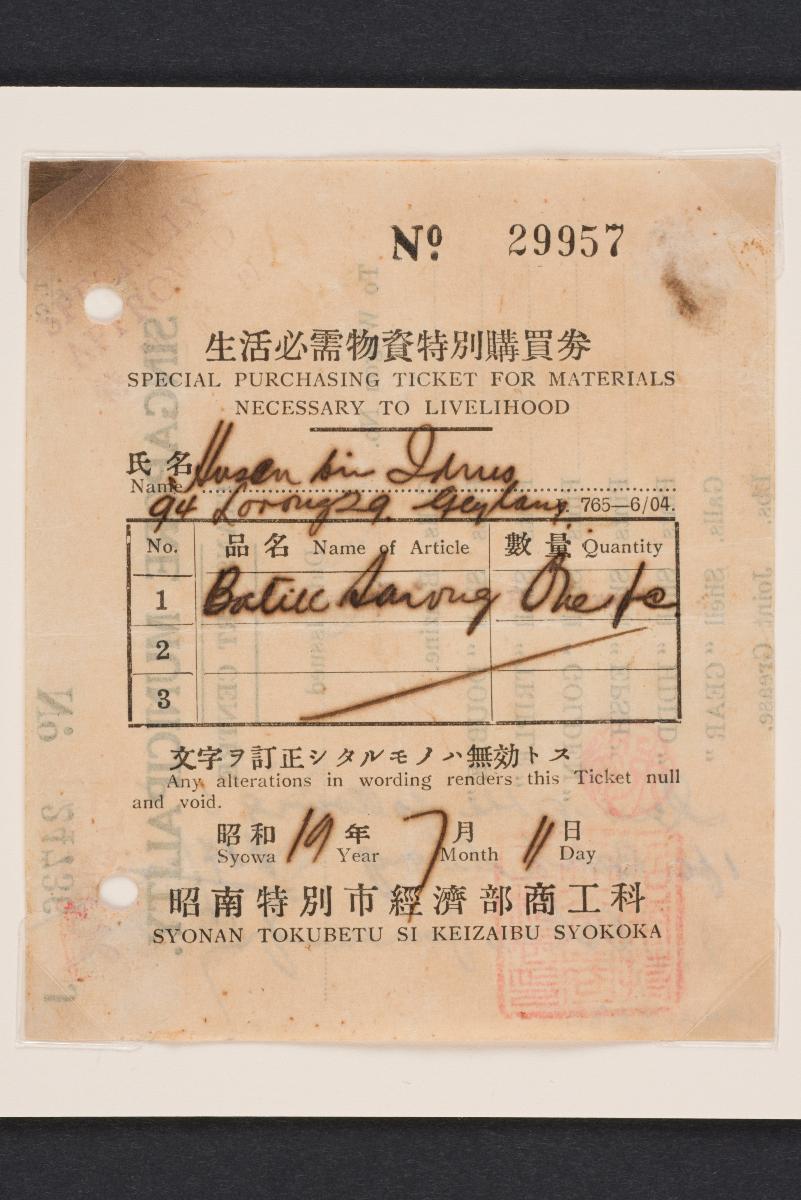 Nº 29957
生活必需物資特別購買券
SPECIAL PURCHASING TICKET FOR MATERIALS
NECESSARY TO LIVELIHOOD
氏名 Husen bin Idrus
Name
94 Lorong 29. Geylang. 765—6/04.
No. 品名 Name of Article 數量 Quantity
1 Batik Sarong One
2
3
文字ヲ訂正シタルモノハ無効トス
Any alterations in wording renders this Ticket null
and void.
昭和 19 年 7 月 11 日
Syowa Year Month Day
昭南特別市經濟部商工科
SYONAN TOKUBETU SI KEIZAIBU SYOKOKA